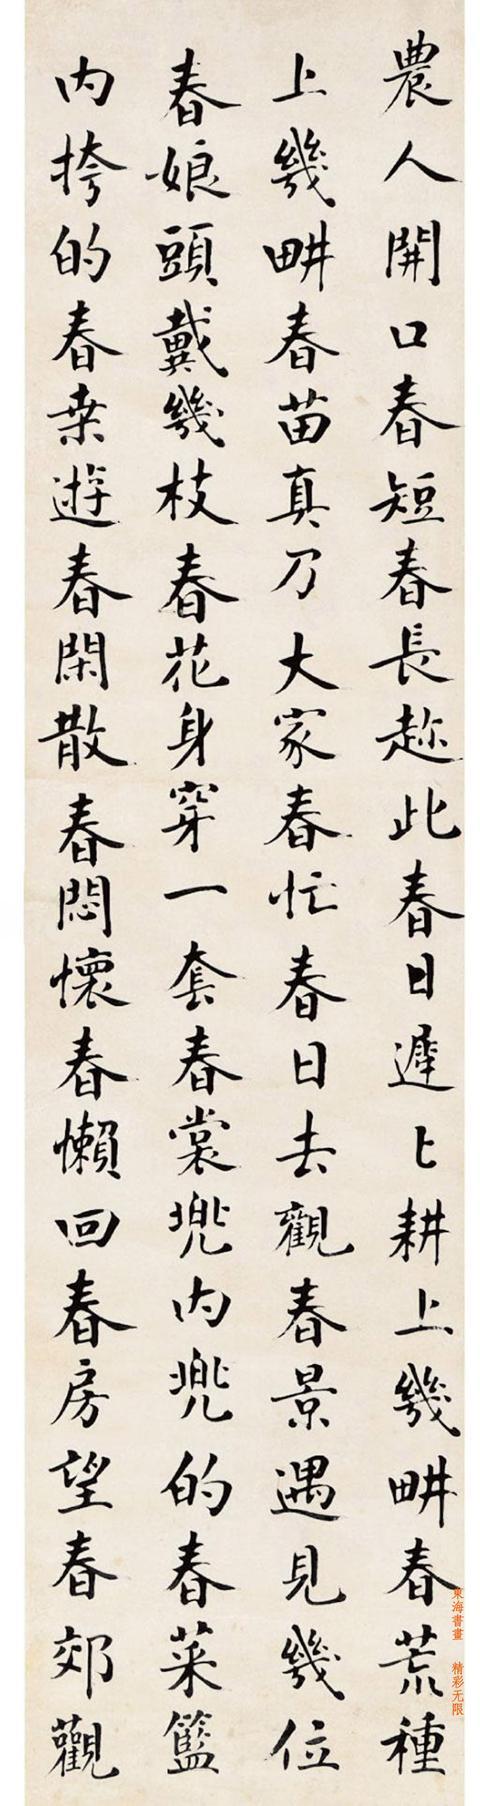 農人開口春短春長趂此春日遲〻耕上幾畊春荒種
上幾畊春苗真乃大家春忙春日去觀春景遇見幾位
春娘頭戴幾枝春花身穿一套春裳兠内兠的春菜籃
内挎的春桒遊春閑散春悶懷春懶回春房望春郊觀
東海書畫 精彩无限